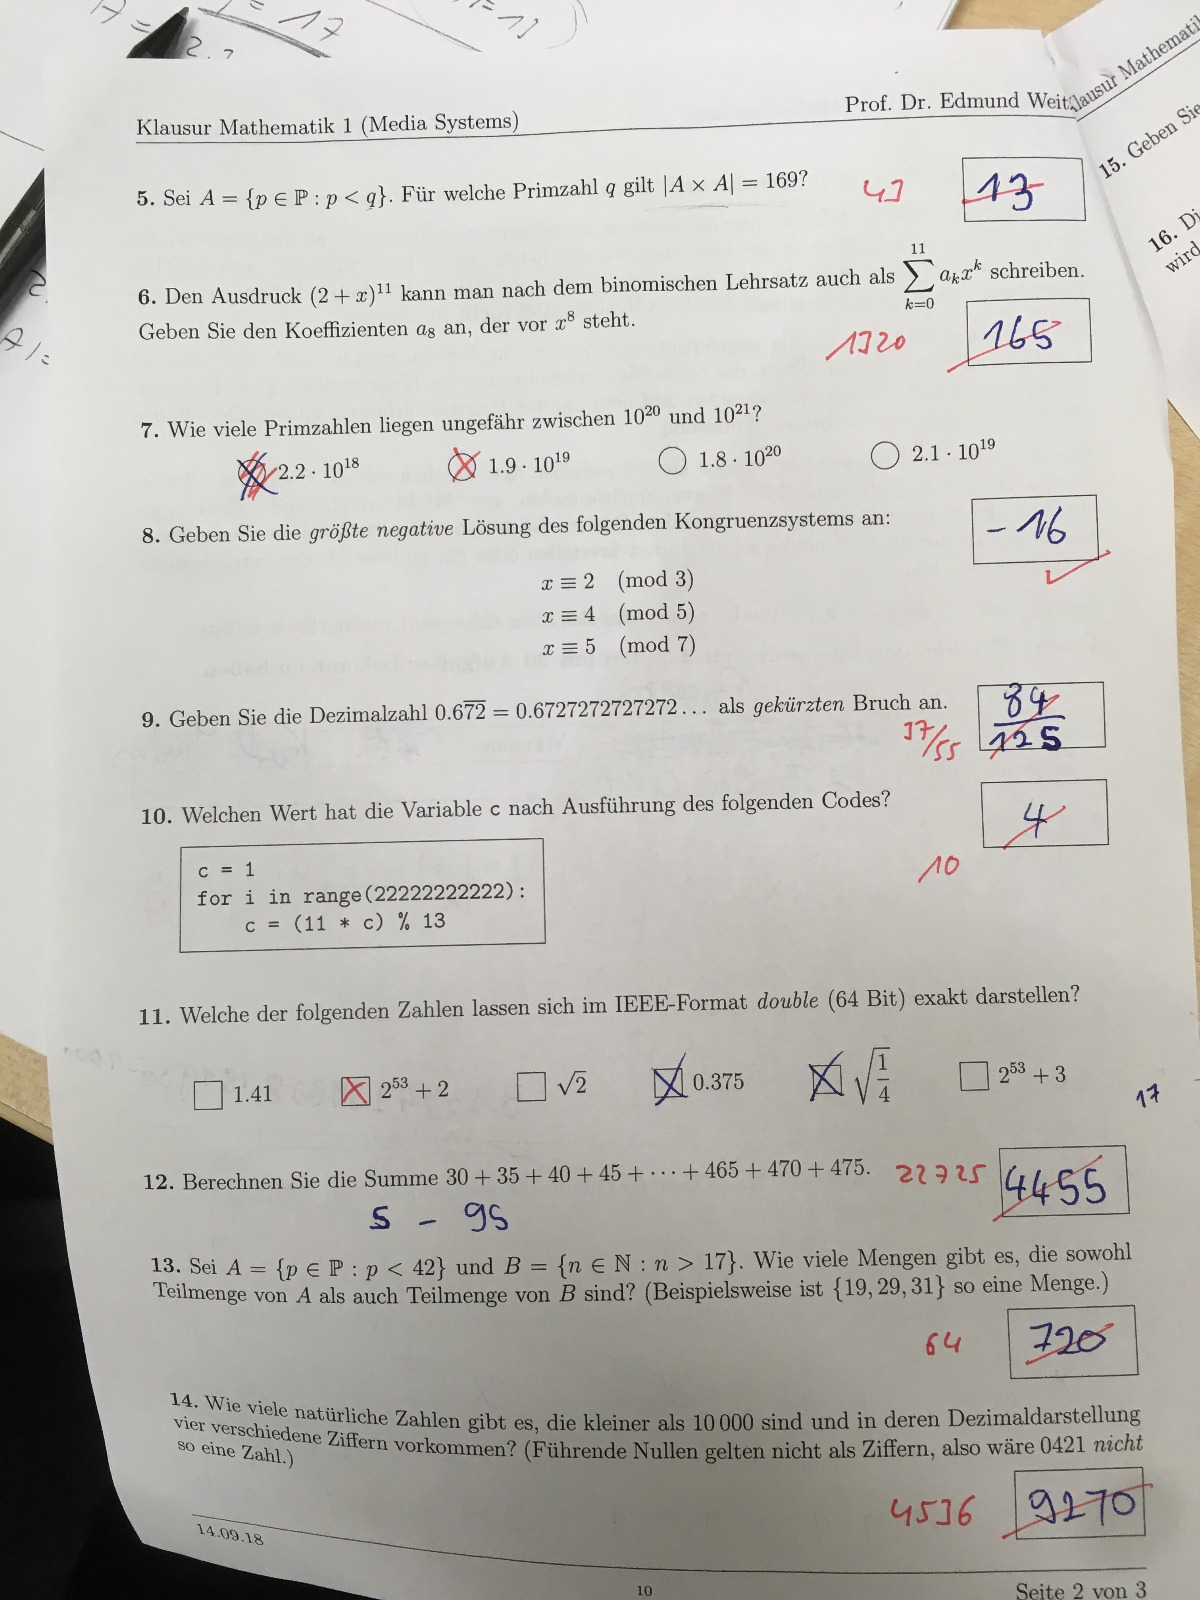 17
Klausur Mathematik 1 (Media Systems)
Prof. Dr. Edmund Weitz
Klausur Mathematik
15. Geben Sie
16. Di
wird
5. Sei A = {p ∈ ℙ : p < q}. Für welche Primzahl q gilt |A × A| = 169?
43
13
6. Den Ausdruck (2 + x)¹¹ kann man nach dem binomischen Lehrsatz auch als ∑_{k=0}^{11} aₖxᵏ schreiben.
Geben Sie den Koeffizienten a₈ an, der vor x⁸ steht.
1320
165
7. Wie viele Primzahlen liegen ungefähr zwischen 10²⁰ und 10²¹?
2.2 · 10¹⁸ 1.9 · 10¹⁹ 1.8 · 10²⁰ 2.1 · 10¹⁹
8. Geben Sie die größte negative Lösung des folgenden Kongruenzsystems an:
-16
x ≡ 2 (mod 3)
x ≡ 4 (mod 5)
x ≡ 5 (mod 7)
9. Geben Sie die Dezimalzahl 0.67̅2̅ = 0.6727272727272... als gekürzten Bruch an.
37/55
84/125
10. Welchen Wert hat die Variable c nach Ausführung des folgenden Codes?
4
10
c = 1
for i in range(22222222222):
c = (11 * c) % 13
11. Welche der folgenden Zahlen lassen sich im IEEE-Format double (64 Bit) exakt darstellen?
1.41 2⁵³ + 2 √2 0.375 √(1/4) 2⁵³ + 3
17
12. Berechnen Sie die Summe 30 + 35 + 40 + 45 + ··· + 465 + 470 + 475.
22725
4455
5 - 95
13. Sei A = {p ∈ ℙ : p < 42} und B = {n ∈ ℕ : n > 17}. Wie viele Mengen gibt es, die sowohl
Teilmenge von A als auch Teilmenge von B sind? (Beispielsweise ist {19, 29, 31} so eine Menge.)
64
720
14. Wie viele natürliche Zahlen gibt es, die kleiner als 10 000 sind und in deren Dezimaldarstellung
vier verschiedene Ziffern vorkommen? (Führende Nullen gelten nicht als Ziffern, also wäre 0421 nicht
so eine Zahl.)
4536
9270
14.09.18
10
Seite 2 von 3